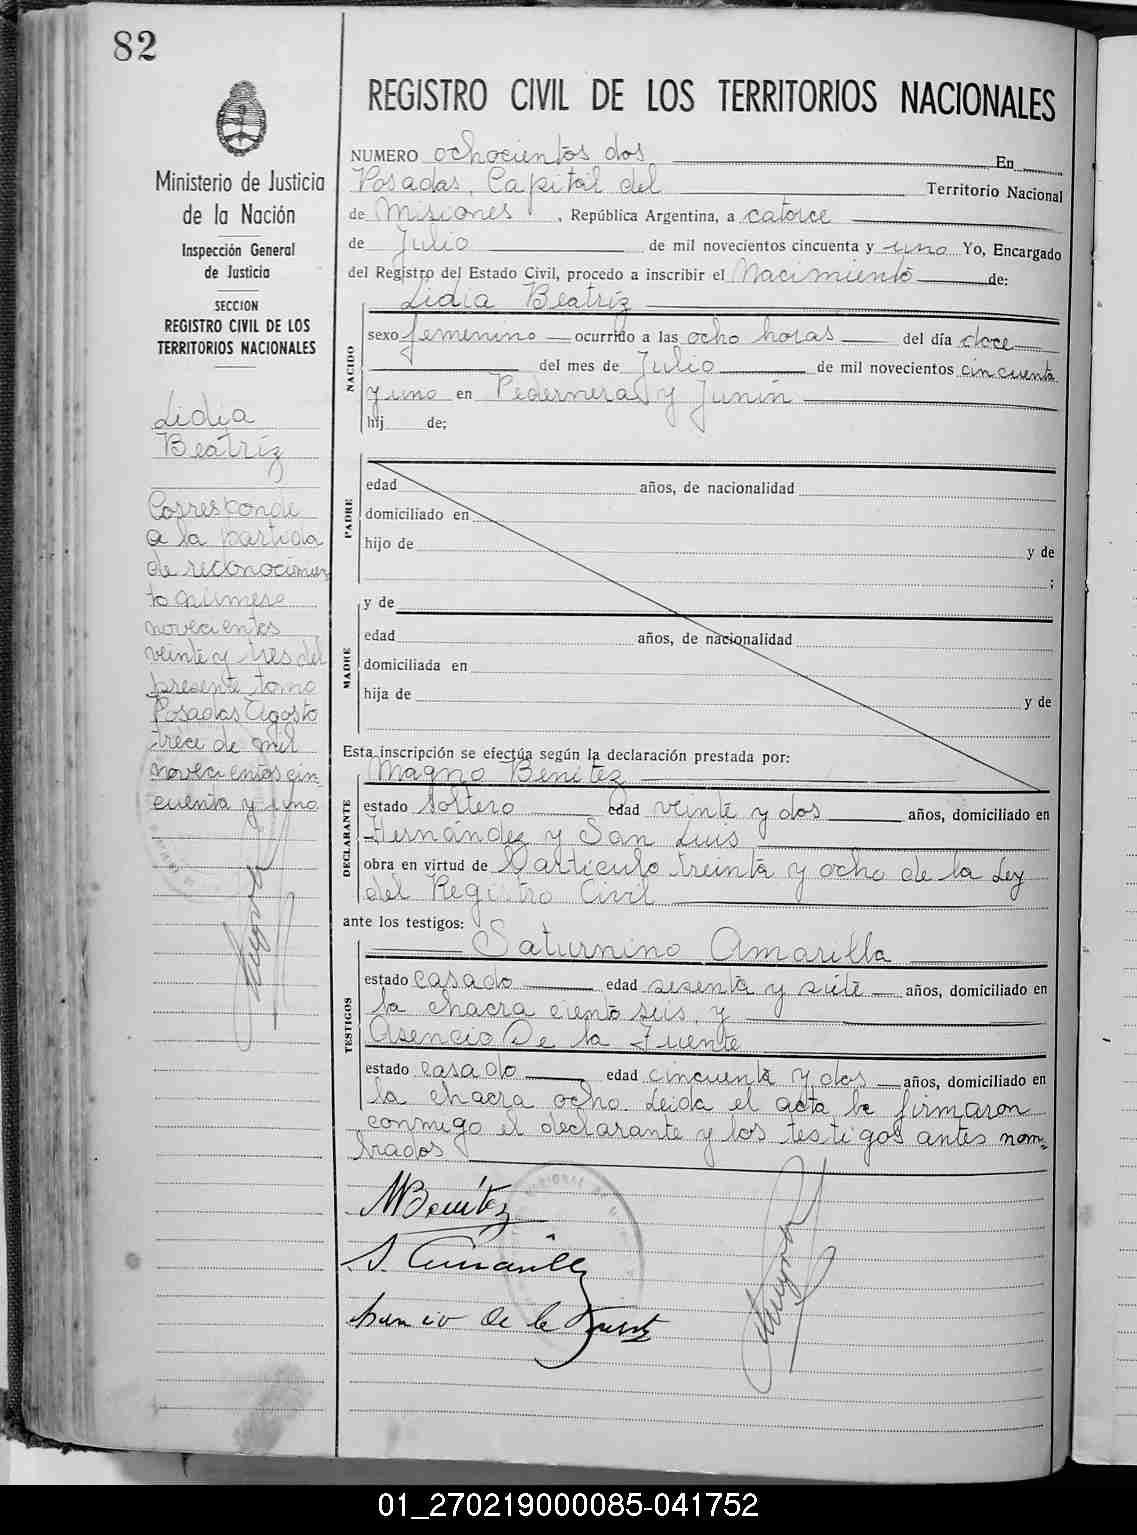 82
Ministerio de Justicia
de la Nación
Inspección General
de Justicia
SECCION
REGISTRO CIVIL DE LOS
TERRITORIOS NACIONALES
Lidia
Beatríz
Corresponde
a la partida
de reconocimien
to número
novecientos
veinte y tres del
presente tomo
Posadas Agosto
trece de mil
novecientos cin
cuenta y uno
REGISTRO CIVIL DE LOS TERRITORIOS NACIONALES
NUMERO ochocientos dos En
Posadas, Capital del Territorio Nacional
de Misiones, República Argentina, a catorce
de Julio de mil novecientos cincuenta y uno Yo, Encargado
del Registro del Estado Civil, procedo a inscribir el Nacimiento de:
Lidia Beatríz
NACIDO
sexo femenino ocurrido a las ocho horas del día doce
del mes de Julio de mil novecientos cincuenta
y uno en Pederneras y Junín
hij de:
PADRE
edad años, de nacionalidad
domiciliado en
hijo de y de
;
y de
MADRE
edad años, de nacionalidad
domiciliada en
hija de y de
Esta inscripción se efectúa según la declaración prestada por:
Magno Benítez
DECLARANTE
estado soltero edad veinte y dos años, domiciliado en
Hernández y San Luis
obra en virtud de artículo treinta y ocho de la Ley
del Registro Civil
ante los testigos:
Saturnino Amarilla
TESTIGOS
estado casado edad sesenta y siete años, domiciliado en
la chacra ciento seis, y
Asencio De la Fuente
estado casado edad cincuenta y dos años, domiciliado en
la chacra ocho. Leida el acta la firmaron
conmigo el declarante y los testigos antes nom=
brados
MBenítez
S. Amarilla
Asencio de la Fuente
01_270219000085-041752